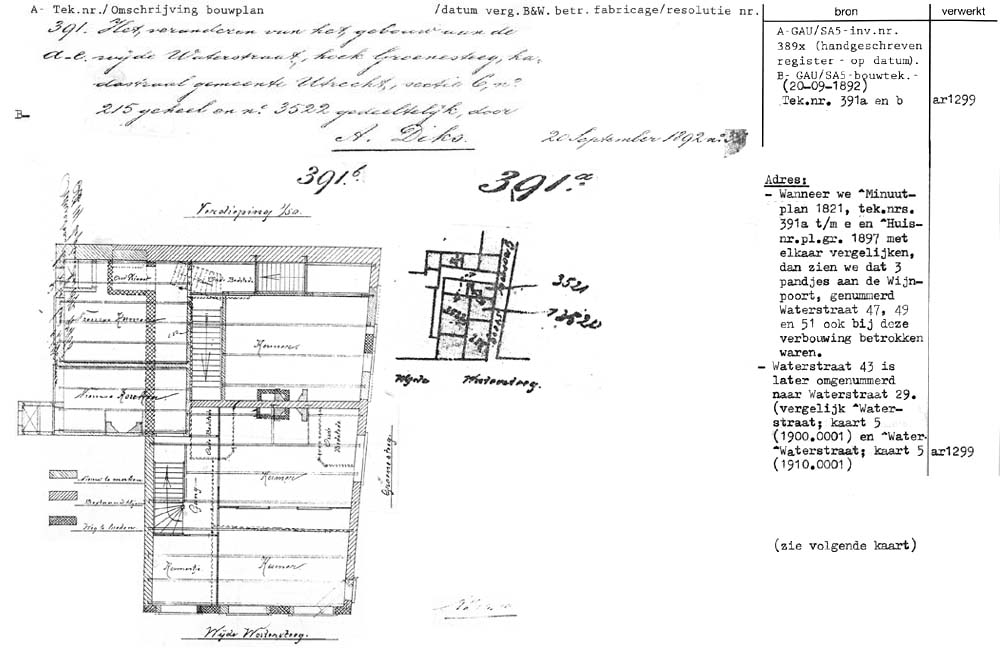 A- Tek.nr./Omschrijving bouwplan /datum verg.B&W. betr. fabricage/resolutie nr. bron verwerkt
391. Het veranderen van het gebouw aan de
a.e. wijde Waterstraat, hoek Groenesteeg, ka-
dastraal gemeente Utrecht, sectie C, no
215 geheel en no 3522 gedeeltelijk, door
B-
A. Diks. 20 September 1892 no
A-GAU/SA5-inv.nr.
389x (handgeschreven
register - op datum).
B- GAU/SA5-bouwtek.-
(20-09-1892)
Tek.nr. 391a en b ar1299
391.b
391.a
Verdieping 1/50.
Adres:
- Wanneer we ^Minuut-
plan 1821, tek.nrs.
391a t/m e en ^Huis-
nr.pl.gr. 1897 met
elkaar vergelijken,
dan zien we dat 3
pandjes aan de Wijn-
poort, genummerd
Waterstraat 47, 49
en 51 ook bij deze
verbouwing betrokken
waren.
- Waterstraat 43 is
later omgenummerd
naar Waterstraat 29.
(vergelijk ^Water-
straat; kaart 5
(1900.0001) en ^Water-
^Waterstraat; kaart 5 ar1299
(1910.0001)
(zie volgende kaart)
3521
3520
Wijde Watersteeg.
Kamer
Oude Bedstede
Groenesteeg
Nieuw te maken
Bestaand blijvend
Weg te breken
Kamer
Gang
Kamertje
Kamer
Wijde Watersteeg.